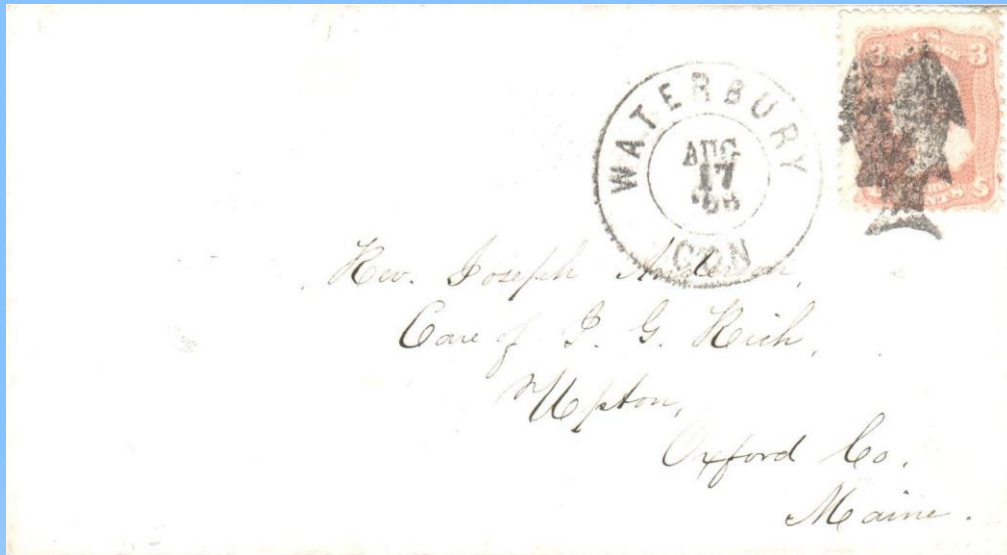 3 3
WATERBURY
AUG
17
CON
Rev. Joseph Anderson,
Care of J. G. Rich,
Upton,
Oxford Co.
Maine.